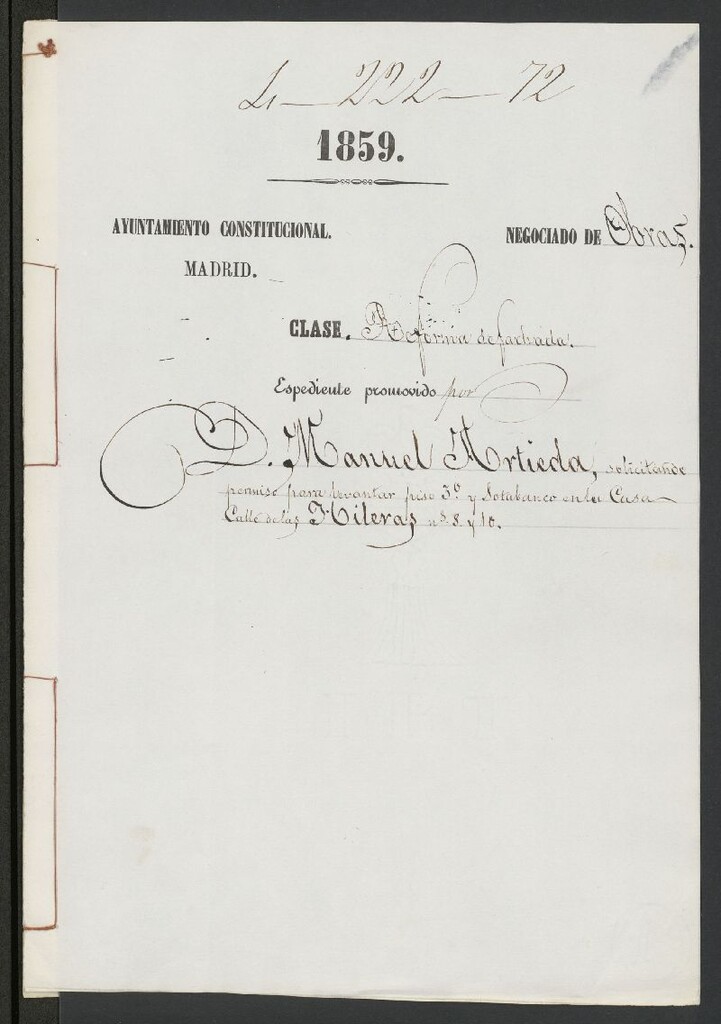 4-222-72
1859.
AYUNTAMIENTO CONSTITUCIONAL.
MADRID.
NEGOCIADO DE Obras.
CLASE. Reforma de fachada.
Espediente promovido por
D. Manuel Artieda, solicitando
permiso para levantar piso 3º y Sotabanco en la Casa
Calle de las Hileras nos. 8 y 10.